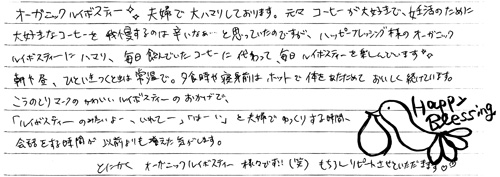 オーガニックルイボスティー✧ 夫婦で大ハマりしております。元々コーヒーが大好きで、妊活のために
大好きなコーヒーを我慢するのは辛いなぁ…と思っていたのですが、ハッピーブレッシング様のオーガニック
ルイボスティーにハマり、毎日飲んでいたコーヒーに代わって、毎日ルイボスティーを楽しんでいます✧
朝や昼、ひといきつくときは常温で。夕食時や寝る前はホットで体をあたためておいしく続けています。
こうのとりマークのかわいいルイボスティーのおかげで、
「ルイボスティーのみたいよー、いれてー」「はーい」と夫婦でゆっくりする時間、
会話をする時間が以前よりも増えた気がします。
とにかくオーガニックルイボスティー様々です!!(笑) もちろんリピートさせていただきます♡
Happy
Blessing